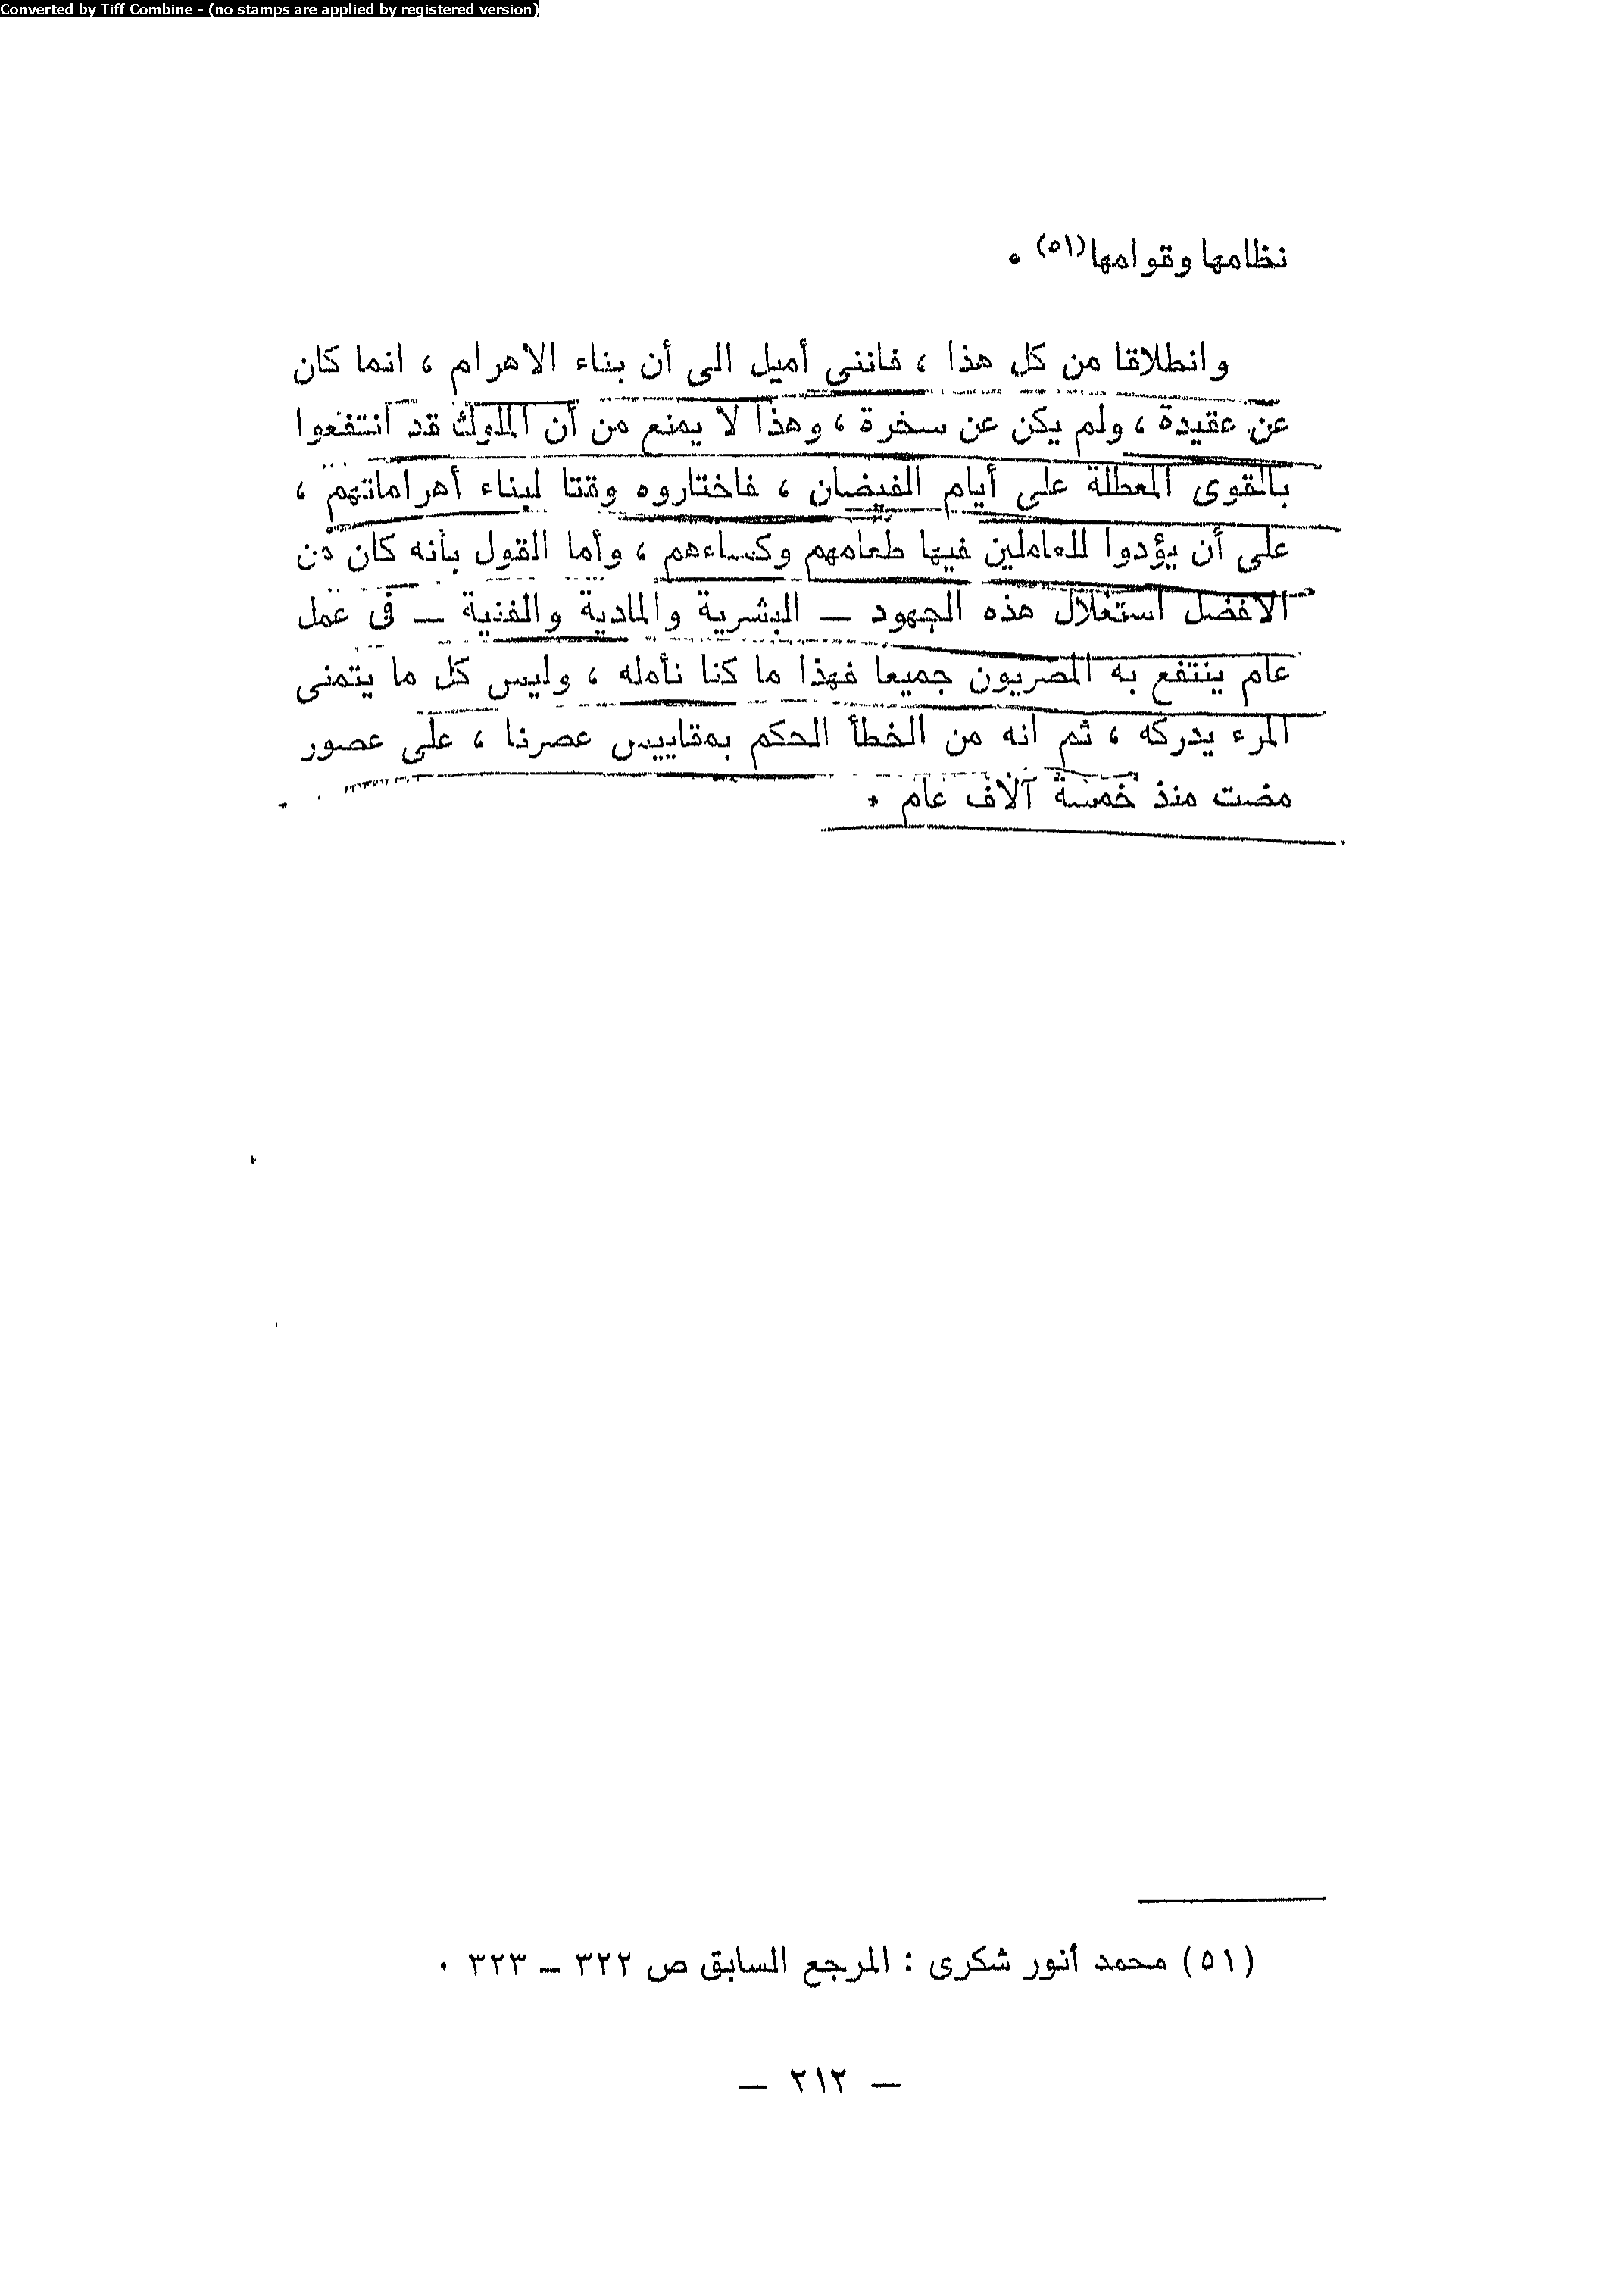 Converted by Tiff Combine - (no stamps are applied by registered version)
نظامها وقوامها(٥١) ٠
وانطلاقا من كل هذا ، فاننى أميل الى أن بناء الاهرام ، انما كان
عن عقيدة ، ولم يكن عن سخرة ، وهذا لا يمنع من أن الملوك قد انتفعوا
بالقوى المعطلة على أيام الفيضان ، فاختاروه وقتا لبناء أهراماتهم ،
على أن يؤدوا للعاملين فيها طعامهم وكساءهم ، وأما القول بأنه كان من
الافضل استغلال هذه الجهود — البشرية والمادية والفنية — فى عمل
عام ينتفع به المصريون جميعا فهذا ما كنا نأمله ، وليس كل ما يتمنى
المرء يدركه ، ثم انه من الخطأ الحكم بمقاييس عصرنا ، على عصور
مضت منذ خمسة آلاف عام ٠
(٥١) محمد أنور شكرى : المرجع السابق ص ٣٢٢ — ٣٢٣ ٠
— ٢١٢ —